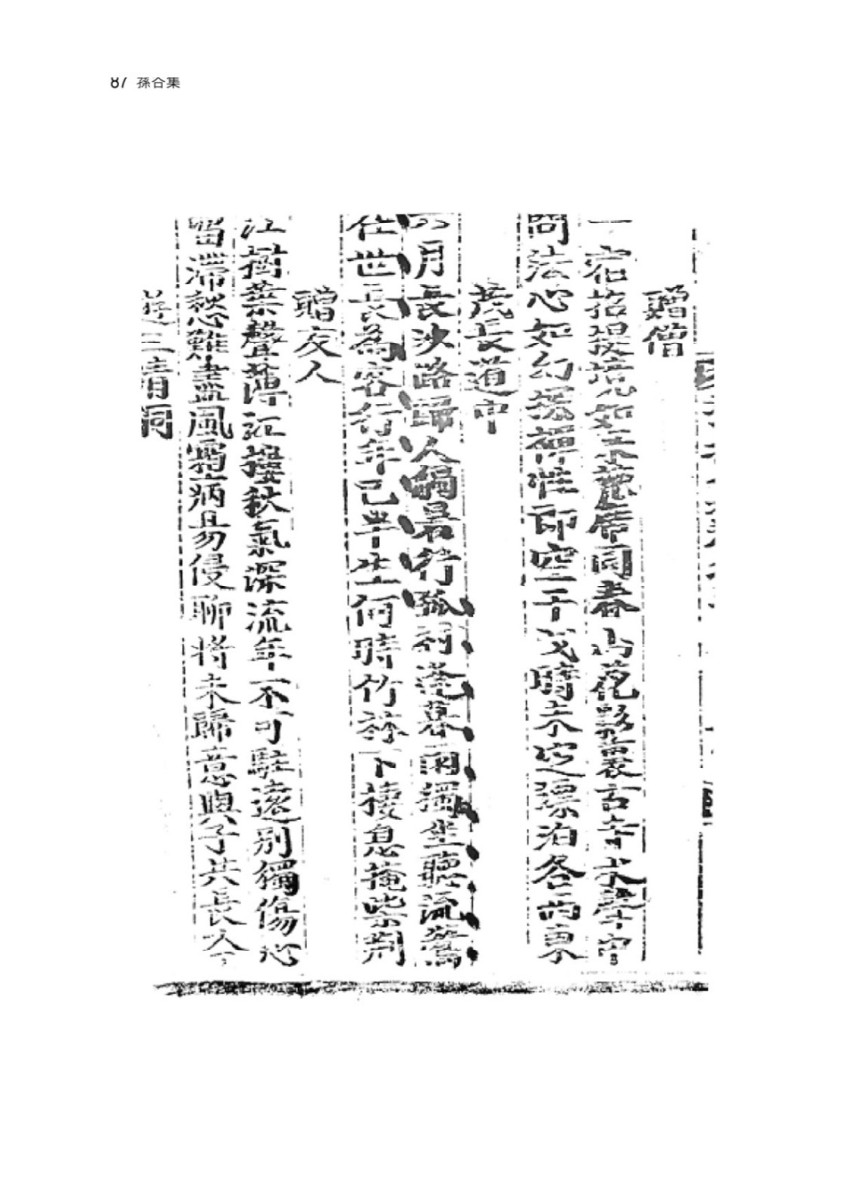 87 孫合集
贈僧
一宿招提境如來蓆同春山花影裏古寺水聲中
問法心如幻探禪性即空干戈時未定漂泊各西東
茺長道中
六月長沙路歸人觸暑行孤村逢暮雨獨坐聽流鶯
在世長為客行年已半生何時竹林下捿息掩柴荆
贈友人
江樹葉聲薄江樓秋氣深流年不可駐遠別獨傷心
留滯愁難盡風霜病易侵聊將未歸意與子共長吟
遊三清洞